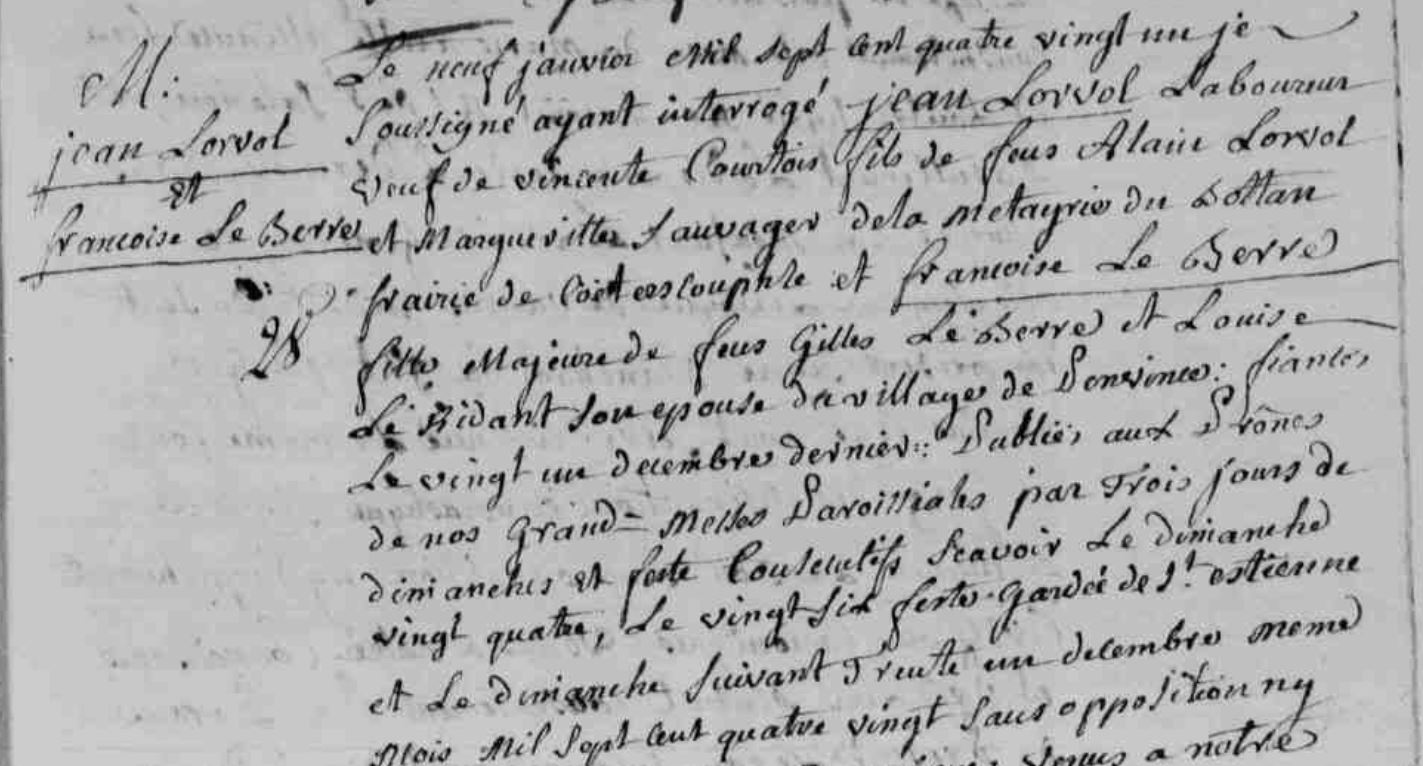 M:
jean Lorvol
et
francoise Le Berre
28
Le neuf janvier Mil sept cent quatre vingt un je
soussigné ayant interrogé jean Lorvol Laboureur
veuf de vincente Courtois fils de feus Alain Lorvol
et Marguerittes Sauvager dela Metayrie du Bottan
frairie de et francoise Le Berre
fille Majeure de feus Gilles Le Berre et Louise
Le Ridant son epouse du village de Penvins: fiances
Le vingt un decembre dernier: Publiés aux Prônes
de nos Grand-Messes Paroissiales par Trois jours de
dimanches et feste Consecutifs Scavoir Le dimanche
vingt quatre, Le vingt six feste Gardée de St estienne
et Le dimanche suivant Trente un decembre meme
Mois Mil Sept Cent quatre vingt Sans opposition ny
venus a notre